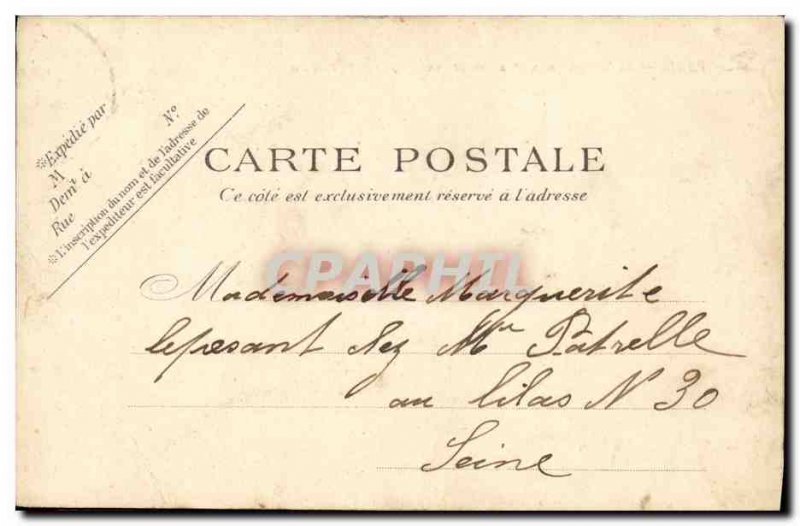 *Expédié par
M
N°
Demt à
Rue
*L'inscription du nom et de l'adresse de
l'expéditeur est facultative
CARTE POSTALE
Ce côté est exclusivement réservé à l'adresse
CPAPHIL
Mademoiselle Marguerite
lepesant chez Mr Patrelle
au lilas N 30
Seine